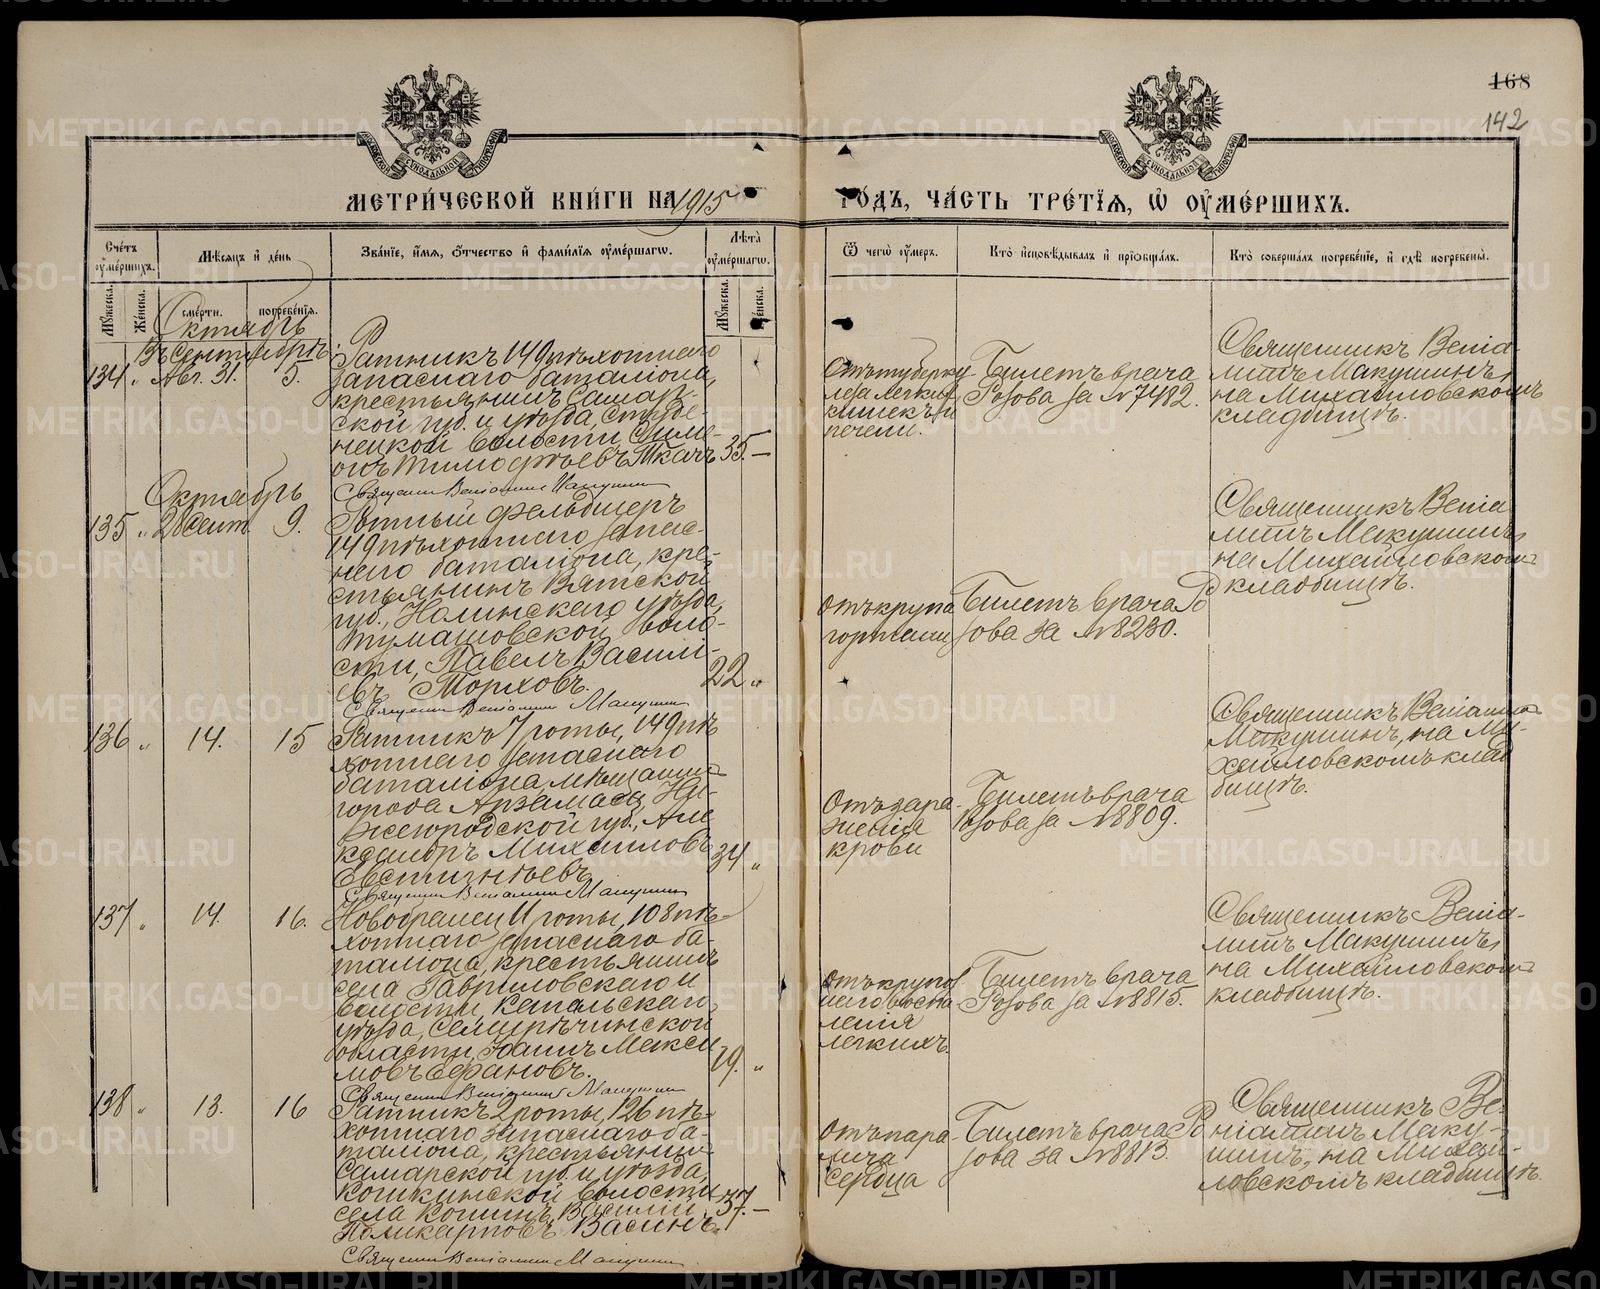 168
142
МЕТРИ́ЧЕСКОЙ КНИ́ГИ НА 1915
ГО́ДЪ, ЧА́СТЬ ТРЕ́ТІѦ, Ѡ҆ ОУ҆МЕ́РШИХЪ.
Сче́тъ оу҆ме́ршихъ.
Мѣ́сѧцъ и҆ де́нь
Зва́нїе, и҆́мѧ, ѻ҆́тчество и҆ фамн́лїѧ оу҆ме́ршагѡ.
Лѣ́та оу҆ме́ршагѡ.
Ѿ чегѡ̀ оу҆́меръ.
Кто̀ и҆сповѣ́дывалъ и҆ прїѻбща́лъ.
Кто̀ соверша́лъ погребе́нїе, и҆ гдѣ̀ погребены̀.
Му́жеска.
Же́нска.
сме́рти.
погребе́нїѧ.
Му́жеска.
Же́нска.
Октябрь
Въ Сентябрѣ.
134 " Авг. 31. 5.
Ратникъ 149 пѣхотнаго
запаснаго баталіона,
крестьянинъ Самар-
ской губ. и уѣзда, Студе-
нецкой волости Симе-
онъ Тимофѣевъ Ткачъ
35. —
Священникъ Веніаминъ Макушинъ
Отъ туберку-
леза легкихъ,
кишекъ и
печени.
Билетъ врача
Розова за №7482.
Священникъ Веніа-
минъ Макушинъ,
на Михайловскомъ
кладбищѣ.
Октябрь
135 " 28 сент. 9.
Ротный фельдшеръ
149 пѣхотнаго запас-
наго баталіона, кре-
стьянинъ Вятской
губ., Нолинскаго уѣзда,
Тумановской воло-
сти, Павелъ Василі-
евъ Торховъ.
22 "
Священникъ Веніаминъ Макушинъ
Отъ крупа
гортани
Билетъ врача Ро-
зова за №8230.
Священникъ Веніа-
минъ Макушинъ,
на Михайловскомъ
кладбищѣ.
136 " 14. 15
Ратникъ 7 роты, 149 пѣ-
хотнаго запаснаго
баталіона, мѣщанинъ
города Арзамаса, Ни-
жегородской губ., Але-
ксандръ Михайловъ
Евстигнѣевъ
34 "
Священникъ Веніаминъ Макушинъ
Отъ зара-
женія
крови
Билетъ врача
Розова за №8809.
Священникъ Веніаминъ
Макушинъ, на Ми-
хайловскомъ клад-
бищѣ.
137 " 14. 16.
Новобранецъ 11 роты, 108 пѣ-
хотнаго запаснаго ба-
таліона, крестьянинъ
села Гавриловскаго и
волости, Копальскаго
уѣзда, Семирѣчинской
области, Іоаннъ Макси-
мовъ Ефановъ.
19. "
Священникъ Веніаминъ Макушинъ
Отъ крупоз-
наго воспа-
ленія
легкихъ.
Билетъ врача
Розова за №8815.
Священникъ Веніа-
минъ Макушинъ,
на Михайловскомъ
кладбищѣ.
138 " 13. 16
Ратникъ 2 роты, 126 пѣ-
хотнаго запаснаго ба-
таліона, крестьянинъ
Самарской губ. и уѣзда,
Кошкинской волости
села Кошки, Василій
Поликарповъ Васинъ.
37. —
Священникъ Веніаминъ Макушинъ
Отъ пара-
лича
сердца
Билетъ врача Ро-
зова за №8813.
Священникъ Ве-
ніаминъ Маку-
шинъ, на Михай-
ловскомъ кладбищѣ.
METRIKI.GASO-URAL.RU